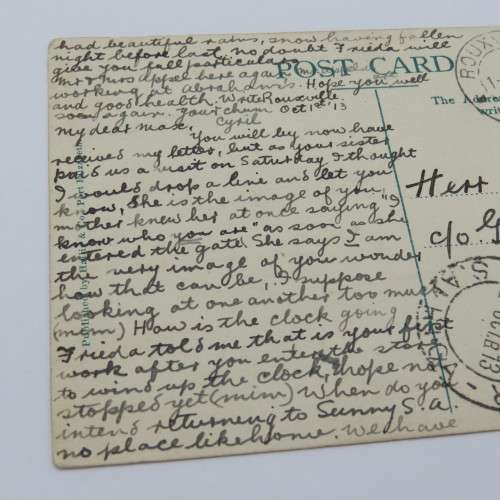 had beautiful rains, snow having fallen
night before last, no doubt Frieda will
give you full particulars
Mr & Mrs Appel here again
working at Abraham's. Hope you well
and good health. Write
soon again. your chum Cyril
Rouxville
Oct 1st '13
My dear Max,
You will by now have
received my letter, but as your sister
paid us a visit on Saturday I thought
I would drop a line and let you
know, She is the image of you,
mother knew her at once saying "I
know who you are" as soon as she
entered the gate. She says I am
the very image of you wonder
how that can be, I suppose
looking at one another too much
(mum) How is the clock going
Frieda told me that is your first
work after you enter the store
to wind up the clock, I hope not
stopped yet (mim) When do you
intend returning to Sunny S.A.
no place like home. We have
POST CARD
The Addre
writ
Herr
c/o G
ROUX
Published by
Port Elizabeth